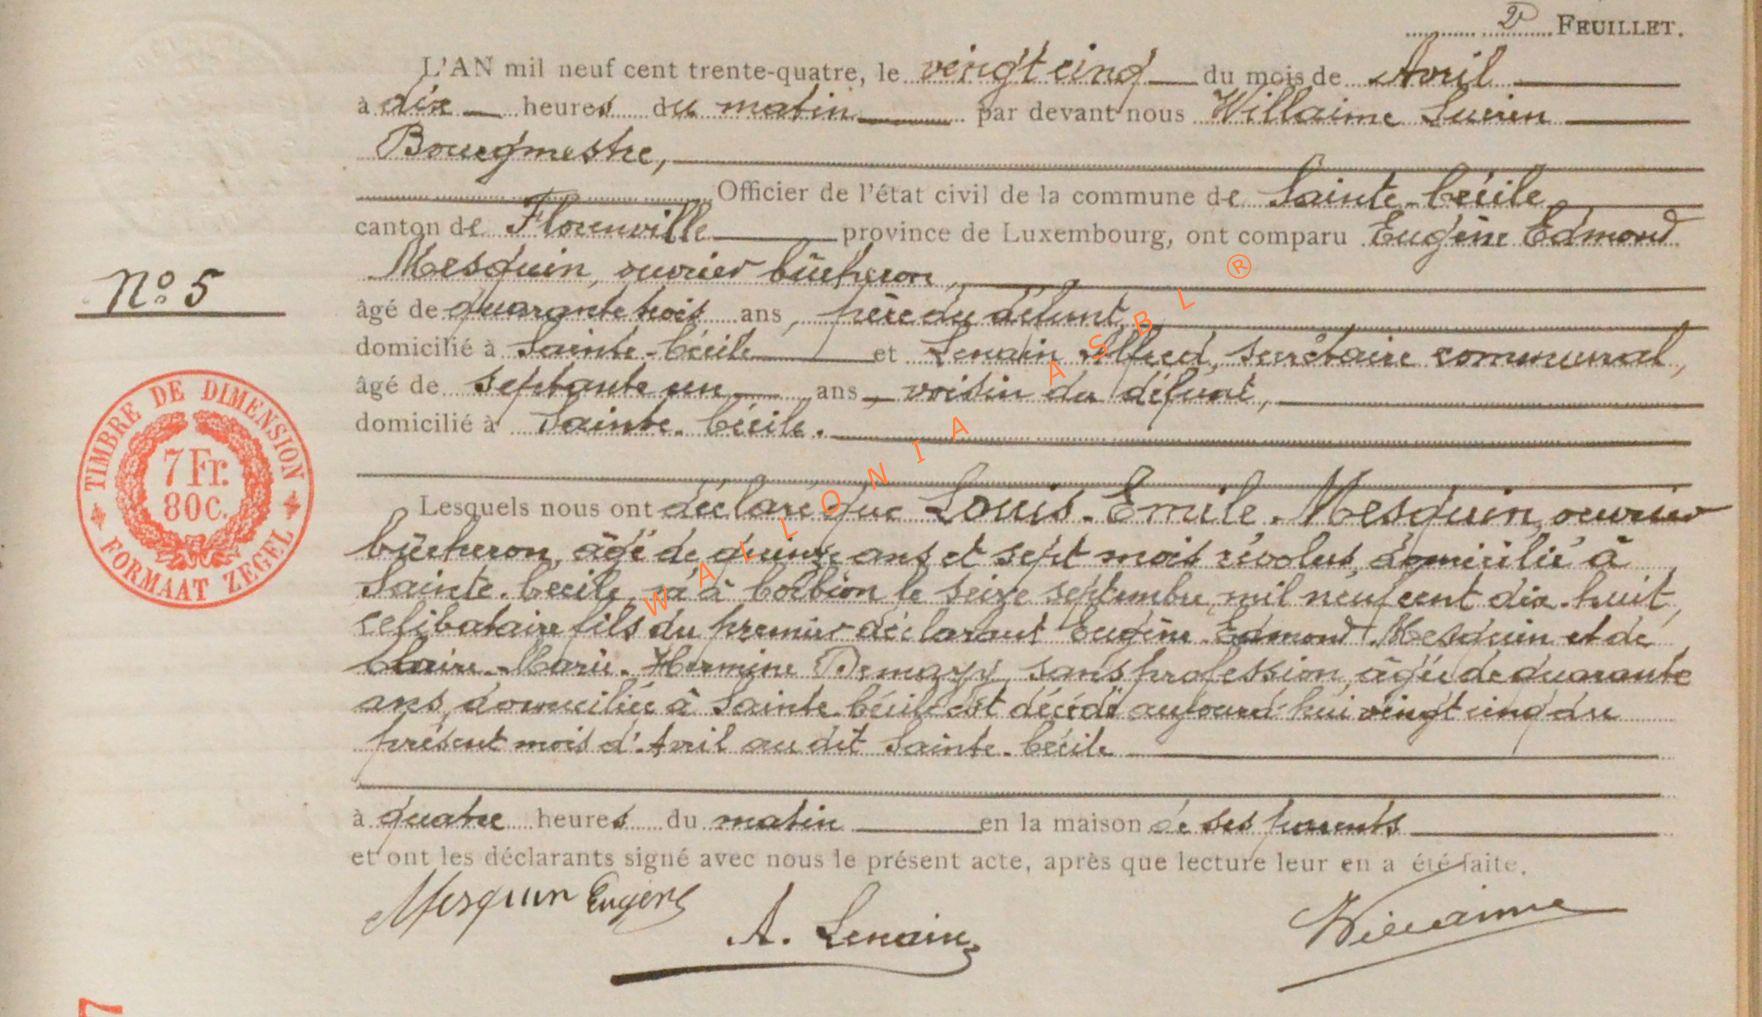 2e FEUILLET.
L'AN mil neuf cent trente-quatre, le vingt cinq du mois de Avril
à dix heures du matin par devant nous Willaime Lucien
Bourgmestre,
Officier de l'état civil de la commune de Sainte-Cécile
canton de Florenville province de Luxembourg, ont comparu Eugène Edmond
Mesquin, ouvrier bûcheron,
N° 5
âgé de quarante trois ans, père du défunt,
domicilié à Sainte-Cécile et Lenain Alfred, secrétaire communal,
âgé de septante un ans, voisin du défunt,
domicilié à Sainte-Cécile.
TIMBRE DE DIMENSION
7 Fr.
80 c.
FORMAAT ZEGEL
Lesquels nous ont déclaré que Louis-Emile-Mesquin, ouvrier
bûcheron, âgé de quinze ans et sept mois révolus, domicilié à
Sainte-Cécile, né à Corbion le seize septembre mil neuf cent dix-huit,
celibataire fils du premier déclarant Eugène Edmond Mesquin et de
Claire-Marie-Hermine Demazy, sans profession, âgée de quarante
ans, domiciliée à Sainte-Cécile est décédé aujourd'hui vingt cinq du
présent mois d'Avril au dit Sainte-Cécile
à quatre heures du matin en la maison de ses parents
et ont les déclarants signé avec nous le présent acte, après que lecture leur en a été faite.
Mesquin Eugène
A. Lenain
Willaime
WALLONIA ASBL ®
7